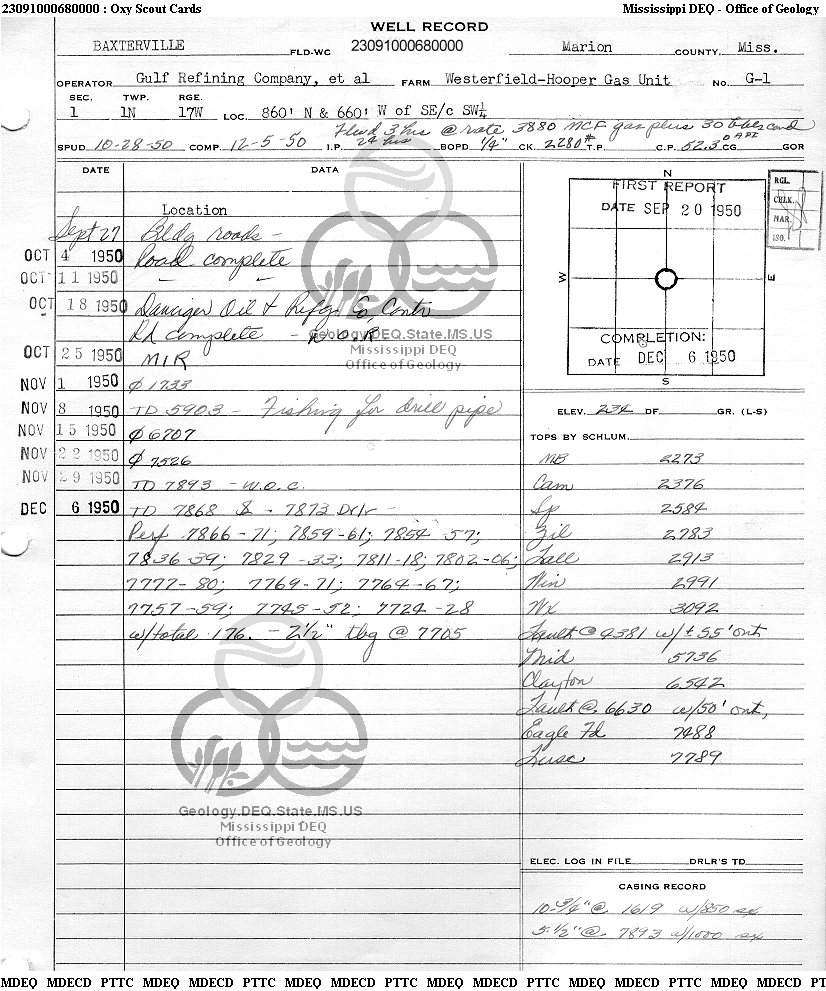 23091000680000 : Oxy Scout Cards Mississippi DEQ - Office of Geology
WELL RECORD
BAXTERVILLE FLD-WC 23091000680000 Marion COUNTY Miss.
OPERATOR Gulf Refining Company, et al FARM Westerfield-Hooper Gas Unit NO. G-1
SEC. TWP. RGE.
1 1N 17W LOC. 860' N & 660' W of SE/c SW¼
Flwd 3 hrs @ rate 3880 MCF gas plus 30 bbls cond
SPUD 10-28-50 COMP. 12-5-50 I.P. 24 hrs BOPD 1/4" CK. 2280# T.P. C.P. 62.3° API CG GOR
DATE DATA
N
FIRST REPORT
DATE SEP 20 1950
RGL.
CHLK.
MAR.
ISO.
W E
COMPLETION:
DATE DEC 6 1950
S
Location
Sept 27 Bldg roads -
OCT 4 1950 Road complete
OCT 11 1950 - -
OCT 18 1950 Danciger Oil & Refg. Co, Contr
Rd complete -
OCT 25 1950 MIR
NOV 1 1950 Ø 1733
NOV 8 1950 TD 5903 - Fishing for drill pipe
NOV 15 1950 Ø 6707
NOV 22 1950 Ø 7526
NOV 29 1950 TD 7893 - W.O.C.
DEC 6 1950 TD 7868 - 7873 Drlr -
Perf 7866-71; 7859-61; 7854-57;
7836-39; 7829-33; 7811-18; 7802-06;
7777-80; 7769-71; 7764-67;
7757-59; 7745-52; 7724-28
w/total 176. - 2½" tbg @ 7705
Geology.DEQ.State.MS.US
Mississippi DEQ
Office of Geology
ELEV. 234 DF. GR. (L-S)
TOPS BY SCHLUM.
MB 2273
Cam 2376
Sp 2584
Zil 2783
Tall 2913
Win 2991
Wx 3092
Fault @ 4381 w/± 55' out
Mid 5736
Clayton 6542
Fault @ 6630 w/50' out,
Eagle Fd 7488
Tusc 7789
Geology.DEQ.State.MS.US
Mississippi DEQ
Office of Geology
ELEC. LOG IN FILE DRLR'S TD
CASING RECORD
10-3/4" @ 1619 w/850 sx
5-1/2" @ 7893 w/1000 sx
MDEQ MDECD PTTC MDEQ MDECD PTTC MDEQ MDECD PTTC MDEQ MDECD PTTC MDEQ MDECD PTTC MDEQ MDECD PT